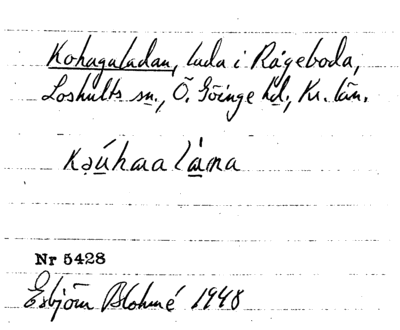 Kohagaladan, lada i Rågeboda,
Loshults sn., Ö. Göinge hd., Kr. län.
Nr 5428
Esbjörn Blohmé 1948